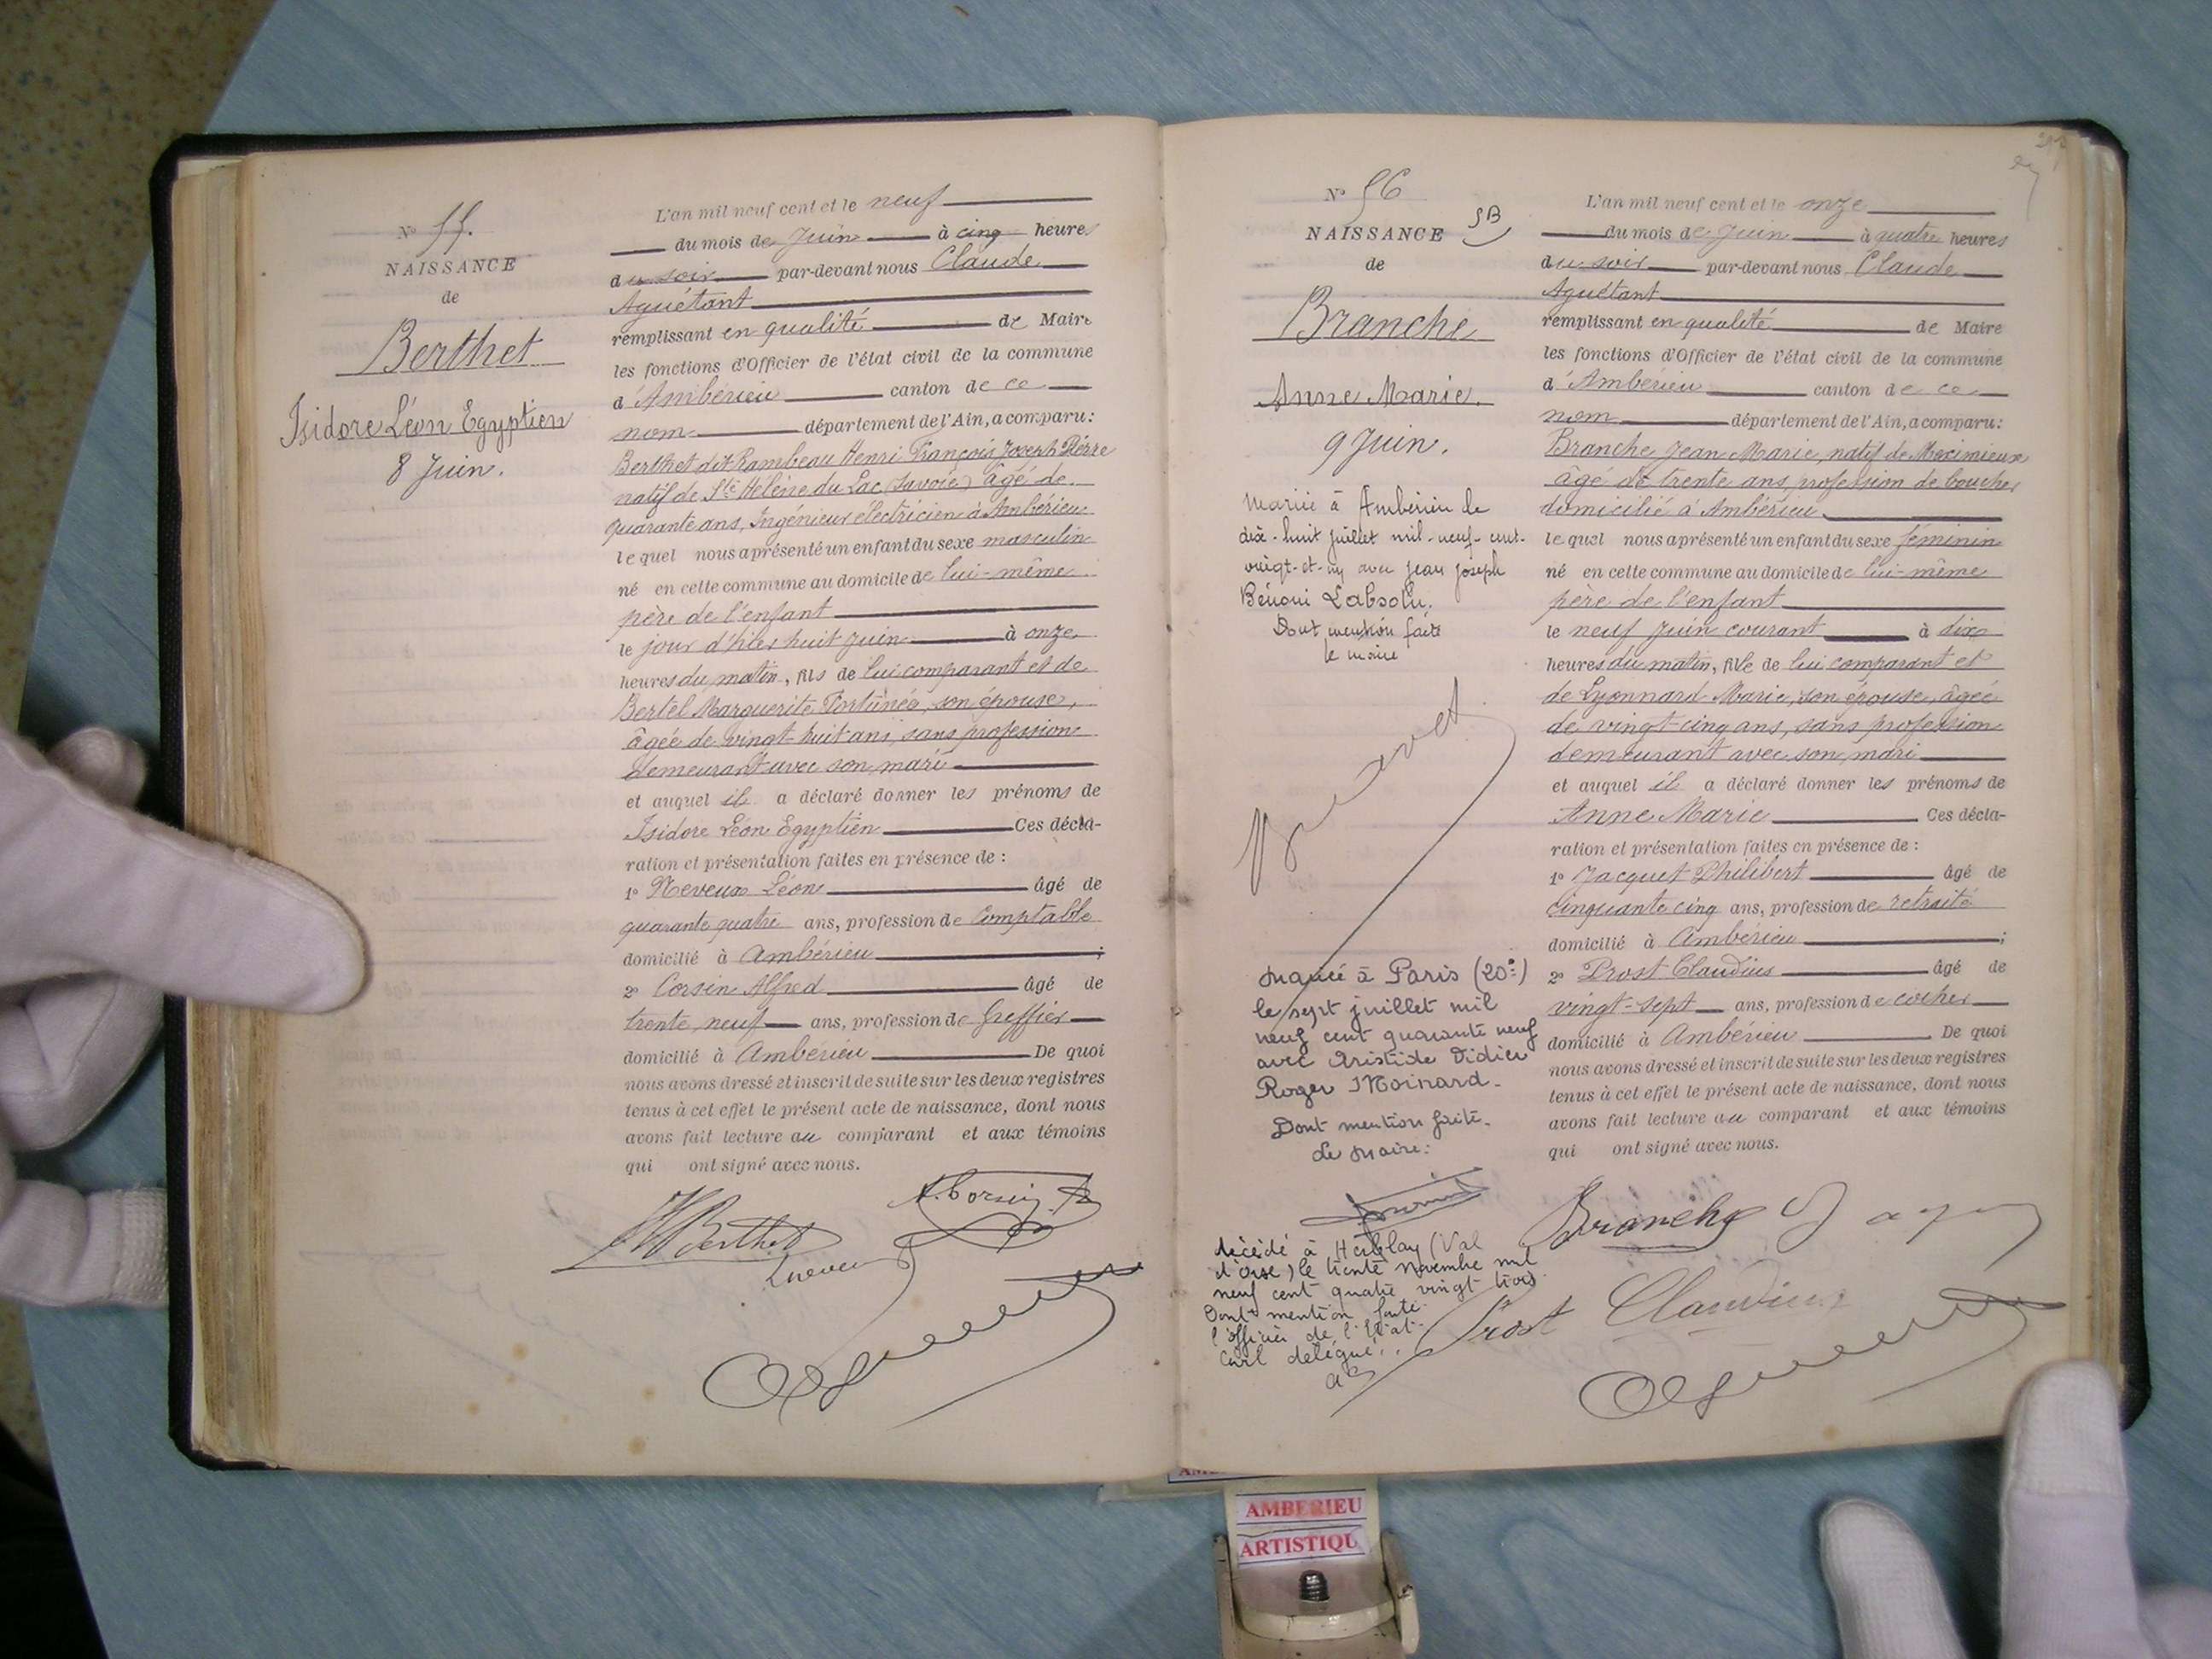 N° 55.
NAISSANCE
de
Berthet
Isidore Léon Egyptien
8 Juin.
L'an mil neuf cent et le neuf
du mois de Juin à cinq heures
du soir par-devant nous Claude
Aguétant
remplissant en qualité de Maire
les fonctions d'Officier de l'état civil de la commune
d'Ambérieu canton de ce
nom département de l'Ain, a comparu:
Berthet dit Rambeau Henri François Joseph Pierre
natif de Ste Hélène du Lac (Savoie) âgé de
quarante ans, Ingénieur électricien à Ambérieu
lequel nous a présenté un enfant du sexe masculin
né en cette commune au domicile de lui-même
père de l'enfant
le jour d'hier huit Juin à onze
heures du matin, fils de lui comparant et de
Bertel Marguerite Fortunée, son épouse,
âgée de vingt-huit ans, sans profession
demeurant avec son mari
et auquel il a déclaré donner les prénoms de
Isidore Léon Egyptien Ces décla-
ration et présentation faites en présence de :
1° Neveux Léon âgé de
quarante quatre ans, profession de Comptable
domicilié à Ambérieu ;
2° Corsin Alfred âgé de
trente neuf ans, profession de Greffier
domicilié à Ambérieu De quoi
nous avons dressé et inscrit de suite sur les deux registres
tenus à cet effet le présent acte de naissance, dont nous
avons fait lecture au comparant et aux témoins
qui ont signé avec nous.
A. Corsin
HBerthet
Lneveux
N° 56
SB
NAISSANCE
de
Branche
Anne Marie.
9 Juin.
Mariée à Ambérieu le
dix-huit juillet mil-neuf-cent-
vingt-et-un avec Jean Joseph
Bénoni Labsolu.
Dont mention faite
le maire
Mariée à Paris (20e)
le sept juillet mil
neuf cent quarante neuf
avec Aristide Didier
Roger Moinard.
Dont mention faite.
Le Maire:
décédé à Herblay (Val
d'Oise) le trente novembre mil
neuf cent quatre vingt trois
Dont mention faite
l'officier de l'Etat
Civil délégué.
L'an mil neuf cent et le onze
du mois de Juin à quatre heures
du soir par-devant nous Claude
Aguétant
remplissant en qualité de Maire
les fonctions d'Officier de l'état civil de la commune
d'Ambérieu canton de ce
nom département de l'Ain, a comparu:
Branche Jean Marie, natif de Meximieux
âgé de trente ans, profession de boucher
domicilié à Ambérieu
lequel nous a présenté un enfant du sexe féminin
né en cette commune au domicile de lui-même
père de l'enfant
le neuf Juin courant à dix
heures du matin, fille de lui comparant et
de Lyonnard Marie, son épouse, âgée
de vingt-cinq ans, sans profession
demeurant avec son mari
et auquel il a déclaré donner les prénoms de
Anne Marie Ces décla-
ration et présentation faites en présence de :
1° Jacquet Philibert âgé de
cinquante cinq ans, profession de retraité
domicilié à Ambérieu ;
2° Prost Claudius âgé de
vingt-sept ans, profession de cocher
domicilié à Ambérieu De quoi
nous avons dressé et inscrit de suite sur les deux registres
tenus à cet effet le présent acte de naissance, dont nous
avons fait lecture au comparant et aux témoins
qui ont signé avec nous.
Branche
Prost Claudius
AMBERIEU
ARTISTIQU